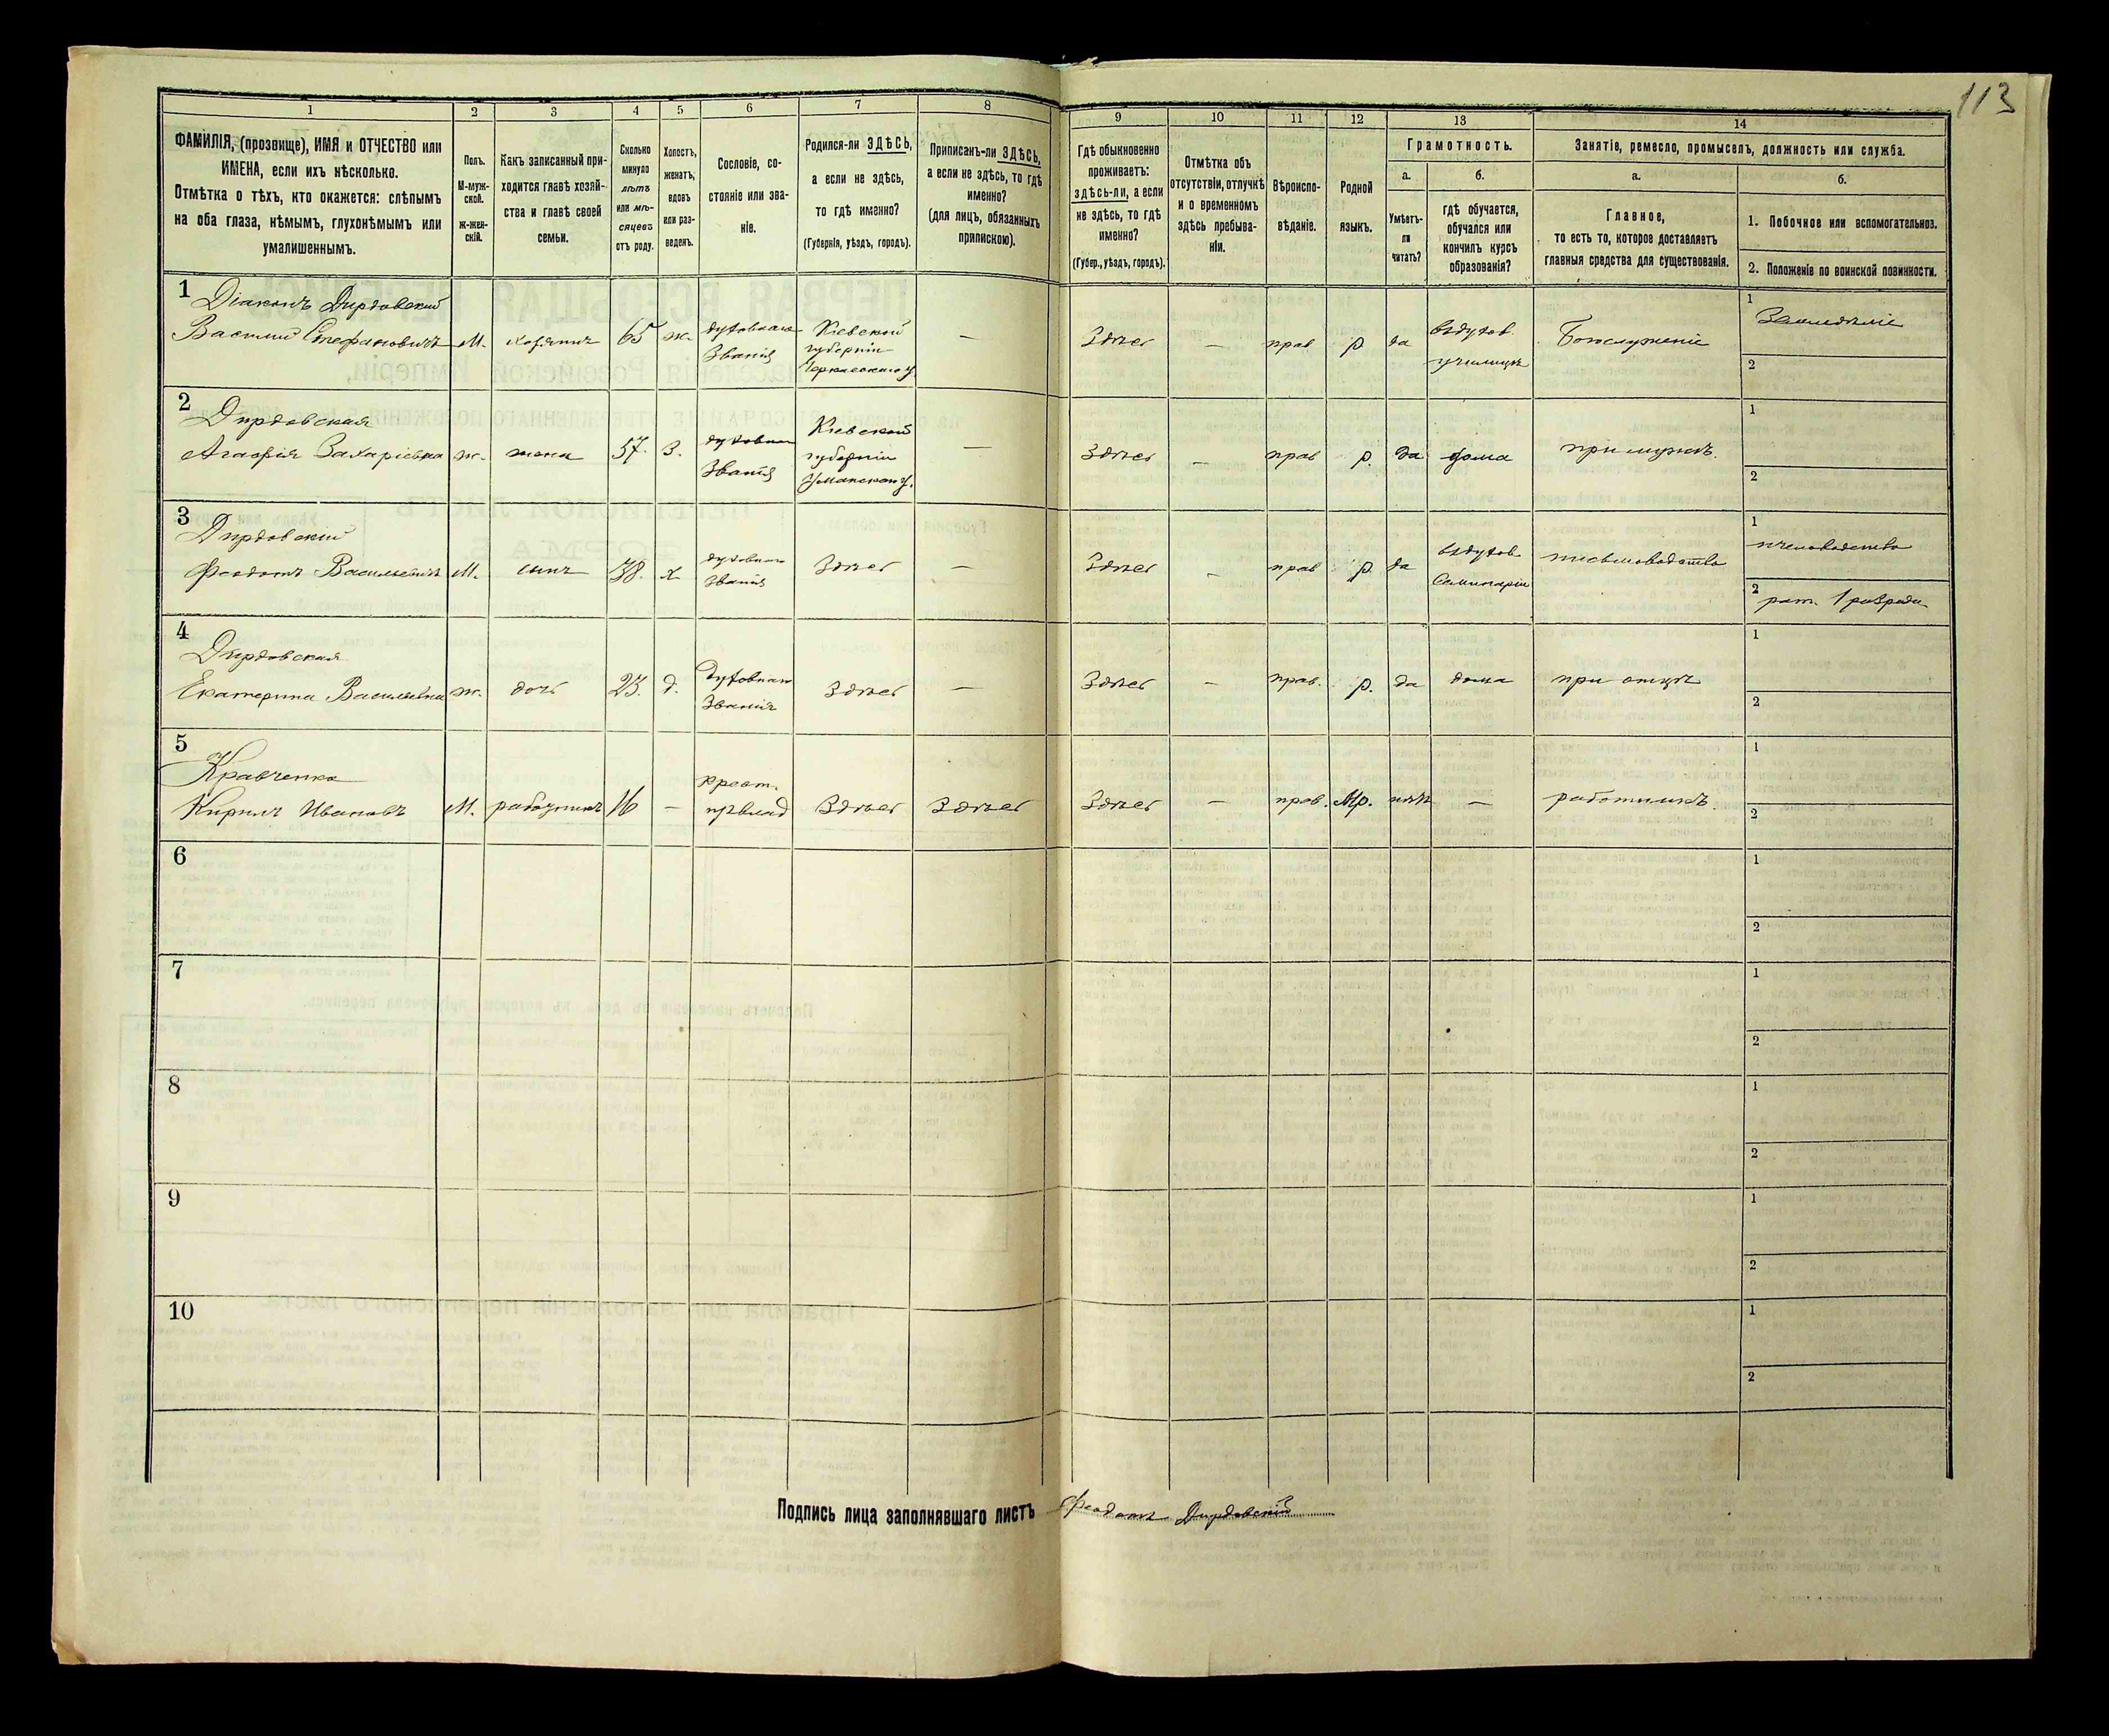 113
1
2
3
4
5
6
7
8
9
10
11
12
13
14
ФАМИЛІЯ, (прозвище), ИМЯ и ОТЧЕСТВО или
ИМЕНА, если ихъ нѣсколько.
Отмѣтка о тѣхъ, кто окажется: слѣпымъ
на оба глаза, нѣмымъ, глухонѣмымъ или
умалишеннымъ.
Полъ.
М-муж-
ской.
Ж-жен-
скій.
Какъ записанный при-
ходится главѣ хозяй-
ства и главѣ своей
семьи.
Сколько
минуло
лѣтъ
или мѣ-
сяцевъ
отъ роду.
Холостъ,
женатъ,
вдовъ
или раз-
веденъ.
Сословіе, со-
стояніе или зва-
ніе.
Родился-ли ЗДѢСЬ,
а если не здѣсь,
то гдѣ именно?
(Губернія, уѣздъ, городъ).
Приписанъ-ли ЗДѢСЬ,
а если не здѣсь, то гдѣ
именно?
(для лицъ, обязанныхъ
припискою).
Гдѣ обыкновенно
проживаетъ:
здѣсь-ли, а если
не здѣсь, то гдѣ
именно?
(Губер., уѣздъ, городъ).
Отмѣтка объ
отсутствіи, отлучкѣ
и о временномъ
здѣсь пребыва-
ніи.
Вѣроиспо-
вѣданіе.
Родной
языкъ.
Грамотность.
а.
Умѣетъ-
ли
читать?
б.
гдѣ обучается,
обучался или
кончилъ курсъ
образованія?
Занятіе, ремесло, промыселъ, должность или служба.
а.
Главное,
то есть то, которое доставляетъ
главныя средства для существованія.
б.
1. Побочное или вспомогательное.
2. Положеніе по воинской повинности.
1
Діаконъ Дирдовскій
Василій Стефановичъ
М.
хозяинъ
65
ж.
духовнаго
званія
Кіевской
губерніи
Черкасскаго у.
—
Здѣсь
—
прав
р
да
въ духов.
училищѣ
Богослуженіе
1
Земледѣліе
2
2
Дирдовская
Агафія Захаріевна
ж.
жена
57.
з.
духовнаго
званія
Кіевской
губерніи
Уманскаго у.
—
Здѣсь
—
прав
р.
да
дома
при мужѣ.
1
2
3
Дирдовскій
Феодотъ Васильевичъ
М.
сынъ
38.
х
духовнаго
званія
Здѣсь
—
Здѣсь
—
прав
р.
да
въ духов.
Семинаріи
письмоводство
1
пчеловодство
2
рат. 1 разряда
4
Дирдовская
Екатерина Васильевна
ж.
дочь
23.
д.
духовнаго
званія
Здѣсь
—
Здѣсь
—
прав.
р.
да
дома
при отцѣ
1
2
5
Кравченко
Кирилъ Ивановъ
М.
работникъ
16
—
крест.
Здѣсь
Здѣсь
Здѣсь
—
прав.
Мр.
нѣтъ
—
работникъ.
1
2
6
1
2
7
1
2
8
1
2
9
1
2
10
1
2
Подпись лица заполнявшаго листъ Феодотъ Дирдовскій